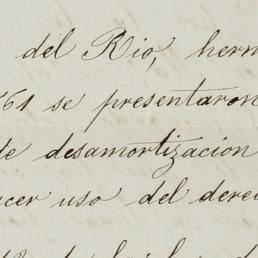 del Rio, herm
61 se presentaron
de desamortización
acer uso del derec